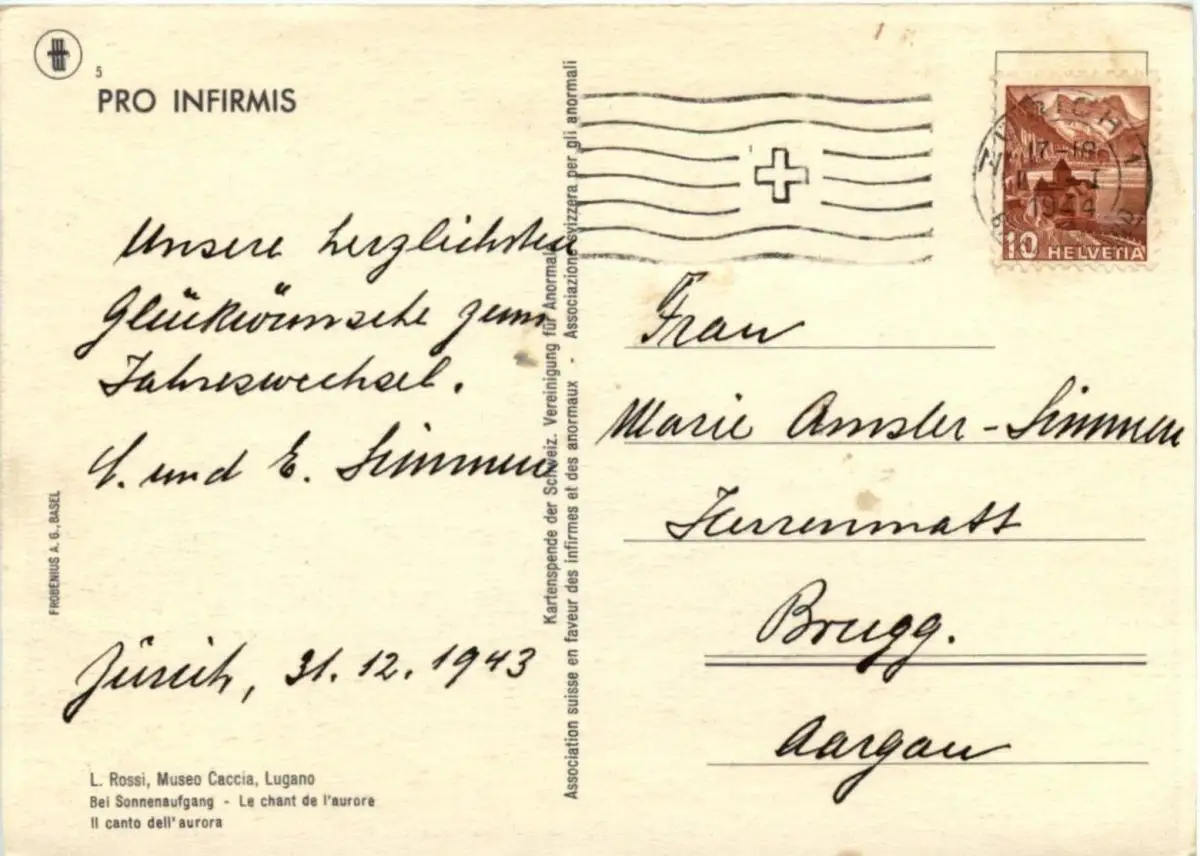 5
PRO INFIRMIS
Unsere herzlichsten
Glückwünsche zum
Jahreswechsel.
und E. Simmen
Zürich, 31. 12. 1943
FROBENIUS A. G., BASEL
L. Rossi, Museo Caccia, Lugano
Bei Sonnenaufgang - Le chant de l'aurore
Il canto dell'aurora
Kartenspende der Schweiz. Vereinigung für Anormale
Association suisse en faveur des infirmes et des anormaux - Associazione svizzera per gli anormali
ZÜRICH 1
17-18
1944
10 HELVETIA
Frau
Marie Amsler-Simmen
Herrenmatt
Brugg.
Aargau